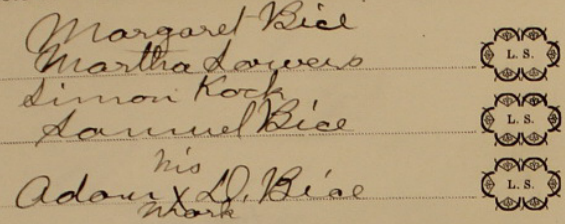 Margaret Bice
Martha Sowers L. S.
Simon Kock
Samuel Bice L. S.
his
Adam X D. Bice L. S.
mark